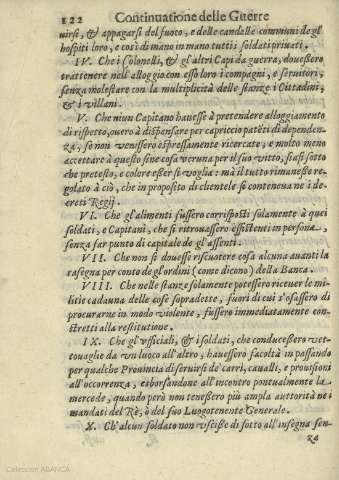 122 Continuatione delle Guerre
uirsi, & appagarsi del fuoco, e delle candelle communi de gl'
hospiti loro, e così di mano in mano tutti i soldati priuati.
IV. Che i Colonelli, & gl'altri Capi da guerra, douessero
trattenere nell'alloggio con esso loro i compagni, e seruitori,
senza molestare con la multiplicità delle stanze i Cittadini,
& i villani.
V. Che niun Capitano hauesse à pretendere alloggiamento
di rispetto, ouero à dispensare per capriccio patēti di dependen-
za, se non venissero espressamente ricercate, e molto meno
accettare à questo fine cosa veruna per il suo vitto, sia si sotto
che pretesto, e colore esser si voglia: mà il tutto rimanesse re-
golato à ciò, che in proposito di clientele se conteneua ne i de-
creti Regij.
VI. Che gl'alimenti fussero corrisposti solamente à quei
soldati, e Capitani, che si ritrouassero essistenti in persona,
senza far punto di capitale de gl'assenti.
VII. Che non si douesse riscuotere cosa alcuna auanti la
rasegna per conto de gl'ordini (come dicono) della Banca.
VIII. Che nelle stanze solamente potessero riceuer le mi-
litie cadauna delle cose sopradette, fuori di cui s'osassero di
procurarne in modo violente, fussero immediatamente con-
stretti alla restitutione.
IX. Che gl'vfficiali, & i soldati, che conducessero vet-
touaglie da vn luoco all'altro, hauessero facoltà in passando
per qualche Prouincia di seruirsi de' carri, caualli, e prouisioni
all'occorrenza, esborsandone all'incontro pontualmente la
mercede, quando però non tenessero più ampla autorità ne i
mandati del Rè, ò del suo Luogotenente Generale.
X. Ch'alcun soldato non vscisse di sotto all'insegna sen-
za
Colección ABANCA